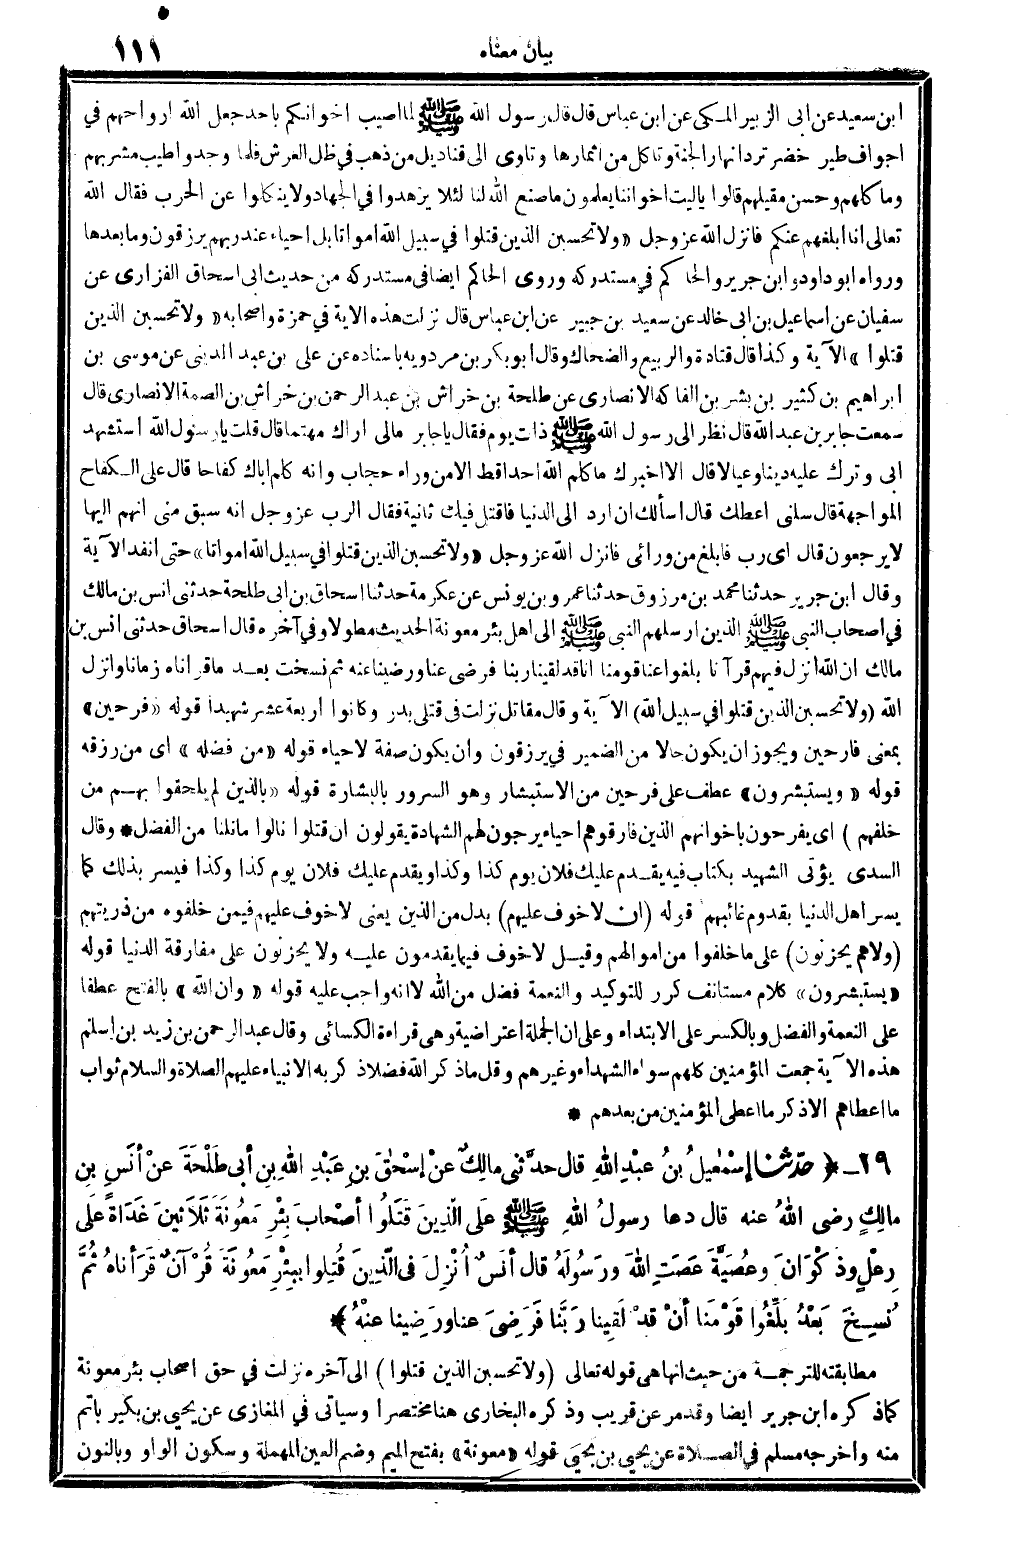 بيان معناه ١١١
ابن سعيد عن ابى الزبير المكى عن ابن عباس قال قال رسول الله ﷺ لما اصيب اخوانكم باحد جعل الله ارواحهم في
اجواف طير خضر ترد انهار الجنة وتاكل من اثمارها وتاوى الى قناديل من ذهب في ظل العرش فلما وجدوا طيب مشربهم
وما كلهم وحسن مقيلهم قالوا ياليت اخواننا يعلمون ما صنع الله لنا لئلا يزهدوا في الجهاد ولا ينكلوا عن الحرب فقال الله
تعالى انا ابلغهم عنكم فانزل الله عز وجل «ولا تحسبن الذين قتلوا في سبيل الله أمواتا بل احياء عند ربهم يرزقون وما بعدها
ورواه ابو داود وابن جرير والحاكم في مستدركه وروى الحاكم ايضا في مستدركه من حديث ابى اسحاق الفزارى عن
سفيان عن اسماعيل بن ابى خالد عن سعيد بن جبير عن ابن عباس قال نزلت هذه الاية في حمزة واصحابه « ولا تحسبن الذين
قتلوا » الآية وكذا قال قتادة والربيع والضحاك وقال أبو بكر بن مردويه باسناده عن على بن عبد المدينى عن موسى بن
ابراهيم بن كثير بن بشر بن الفاكه الانصارى عن طلحة بن خراش بن عبد الرحمن بن خراش بن الصمة الانصارى قال
سمعت جابر بن عبد الله قال نظر الى رسول الله ﷺ ذات يوم فقال يا جابر مالى اراك مهتما قال قلت يا رسول الله استشهد
ابى وترك عليه دينا وعيالا قال الا اخبرك ما كلم الله احدا قط الا من وراء حجاب وانه كلم اباك كفاحا قال على الكفاح
المواجهة قال سلنى اعطك قال اسألك ان ارد الى الدنيا فاقتل فيك ثانية فقال الرب عز وجل انه سبق منى انهم اليها
لا يرجعون قال اى رب فابلغ من ورائى فانزل الله عز وجل «ولا تحسبن الذين قتلوا في سبيل الله امواتا» حتى انفد الآية
وقال ابن جرير حدثنا محمد بن مرزوق حدثنا عمرو بن يونس عن عكرمة حدثنا اسحاق بن ابى طلحة حدثنى انس بن مالك
في اصحاب النبى ﷺ الذين ارسلهم النبى ﷺ الى اهل بئر معونة الحديث مطولا وفي آخره قال اسحاق حدثنى انس بن
مالك ان الله انزل فيهم قرآنا بلغوا عنا قومنا انا قد لقينا ربنا فرضى عنا ورضينا عنه ثم نسخت بعد ما قراناه زمانا وانزل
الله (ولا تحسبن الذين قتلوا في سبيل الله) الآية وقال مقاتل نزلت فى قتلى بدر وكانوا اربعة عشر شهيدا قوله «فرحين»
بمعنى فارحين ويجوز ان يكون حالا من الضمير في يرزقون وان يكون صفة لاحياء قوله «من فضله » اى من رزقه
قوله « ويستبشرون» عطف على فرحين من الاستبشار وهو السرور بالبشارة قوله «بالذين لم يلحقوا بهم من
خلفهم ) اى يفرحون باخوانهم الذين فارقوهم احياء يرجون لهم الشهادة يقولون ان قتلوا نالوا ما نلنا من الفضل * وقال
السدى يؤتى الشهيد بكتاب فيه يقدم عليك فلان يوم كذا وكذا ويقدم عليك فلان يوم كذا وكذا فيسر بذلك كما
يسر اهل الدنيا بقدوم غائبهم قوله (ان لا خوف عليهم) بدل من الذين يعنى لا خوف عليهم فيمن خلفوه من ذريتهم
(ولا هم يحزنون) على ما خلفوا من اموالهم وقيل لا خوف فيما يقدمون عليه ولا يحزنون على مفارقة الدنيا قوله
«يستبشرون» كلام مستانف كرر للتوكيد والنعمة فضل من الله لا انه واجب عليه قوله « وان الله » بالفتح عطفا
على النعمة والفضل وبالكسر على الابتداء وعلى ان الجملة اعتراضية وهى قراءة الكسائى وقال عبد الرحمن بن زيد بن اسلم
هذه الآية جمعت المؤمنين كلهم سواء الشهداء وغيرهم وقل ما ذكر الله فضلا ذكر به الانبياء عليهم الصلاة والسلام ثواب
ما اعطاهم الا ذكر ما اعطى المؤمنين من بعدهم *
٢٩ـ ﴿ حدثنا إسْمٰعِيلُ بنُ عبْدِ اللهِ قال حدَّثنى مالِكٌ عنْ إسْحٰقَ بنِ عَبْدِ اللهِ بنِ أبى طَلْحَةَ عنْ أنَسِ بنِ
مالِكٍ رضى اللهُ عنه قال دعا رسولُ اللهِ ﷺ علَى الَّذِينَ قَتَلُوا أصْحابَ بِئْرِ مَعُونَةَ ثَلَاثِينَ غَدَاةً علَى
رِعْلٍ وذَكْوَانَ وعُصَيَّةَ عَصَتِ اللهَ ورَسُولَهُ قال أنَسٌ أُنْزِلَ فى الَّذِينَ قُتِلوا بِبِئْرِ مَعُونَةَ قُرْآنٌ قَرَأناهُ ثُمَّ
نُسِخَ بَعْدُ بَلِّغُوا قَوْمَنا أنْ قدْ لَقِينا رَبَّنا فَرَضِىَ عنا ورَضِينا عنْهُ ﴾
مطابقته للترجمة من حيث انها هى قوله تعالى (ولا تحسبن الذين قتلوا ) الى آخره نزلت في حق اصحاب بئر معونة
كما ذكره ابن جرير ايضا وقد مر عن قريب وذكره البخارى هنا مختصرا وسياتى في المغازى عن يحيى بن بكير باتم
منه واخرجه مسلم في الصلاة عن يحيى بن يحيى قوله «معونة» بفتح الميم وضم العين المهملة وسكون الواو وبالنون